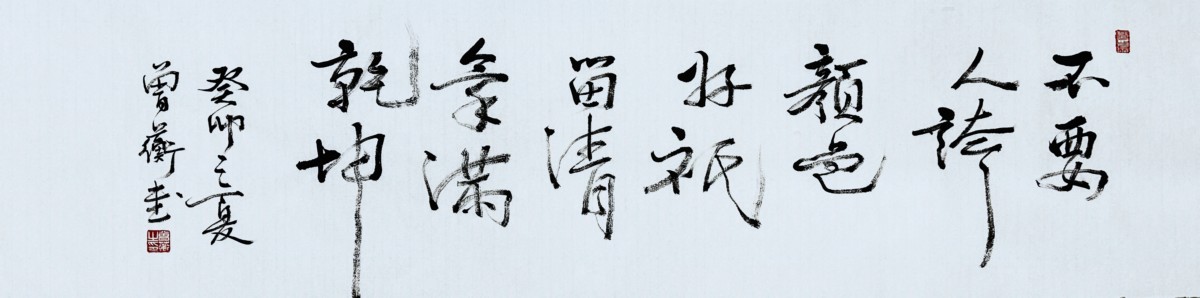 不要
人誇
顏色
好祇
留清
氣滿
乾坤
癸卯之夏
曾蘅書